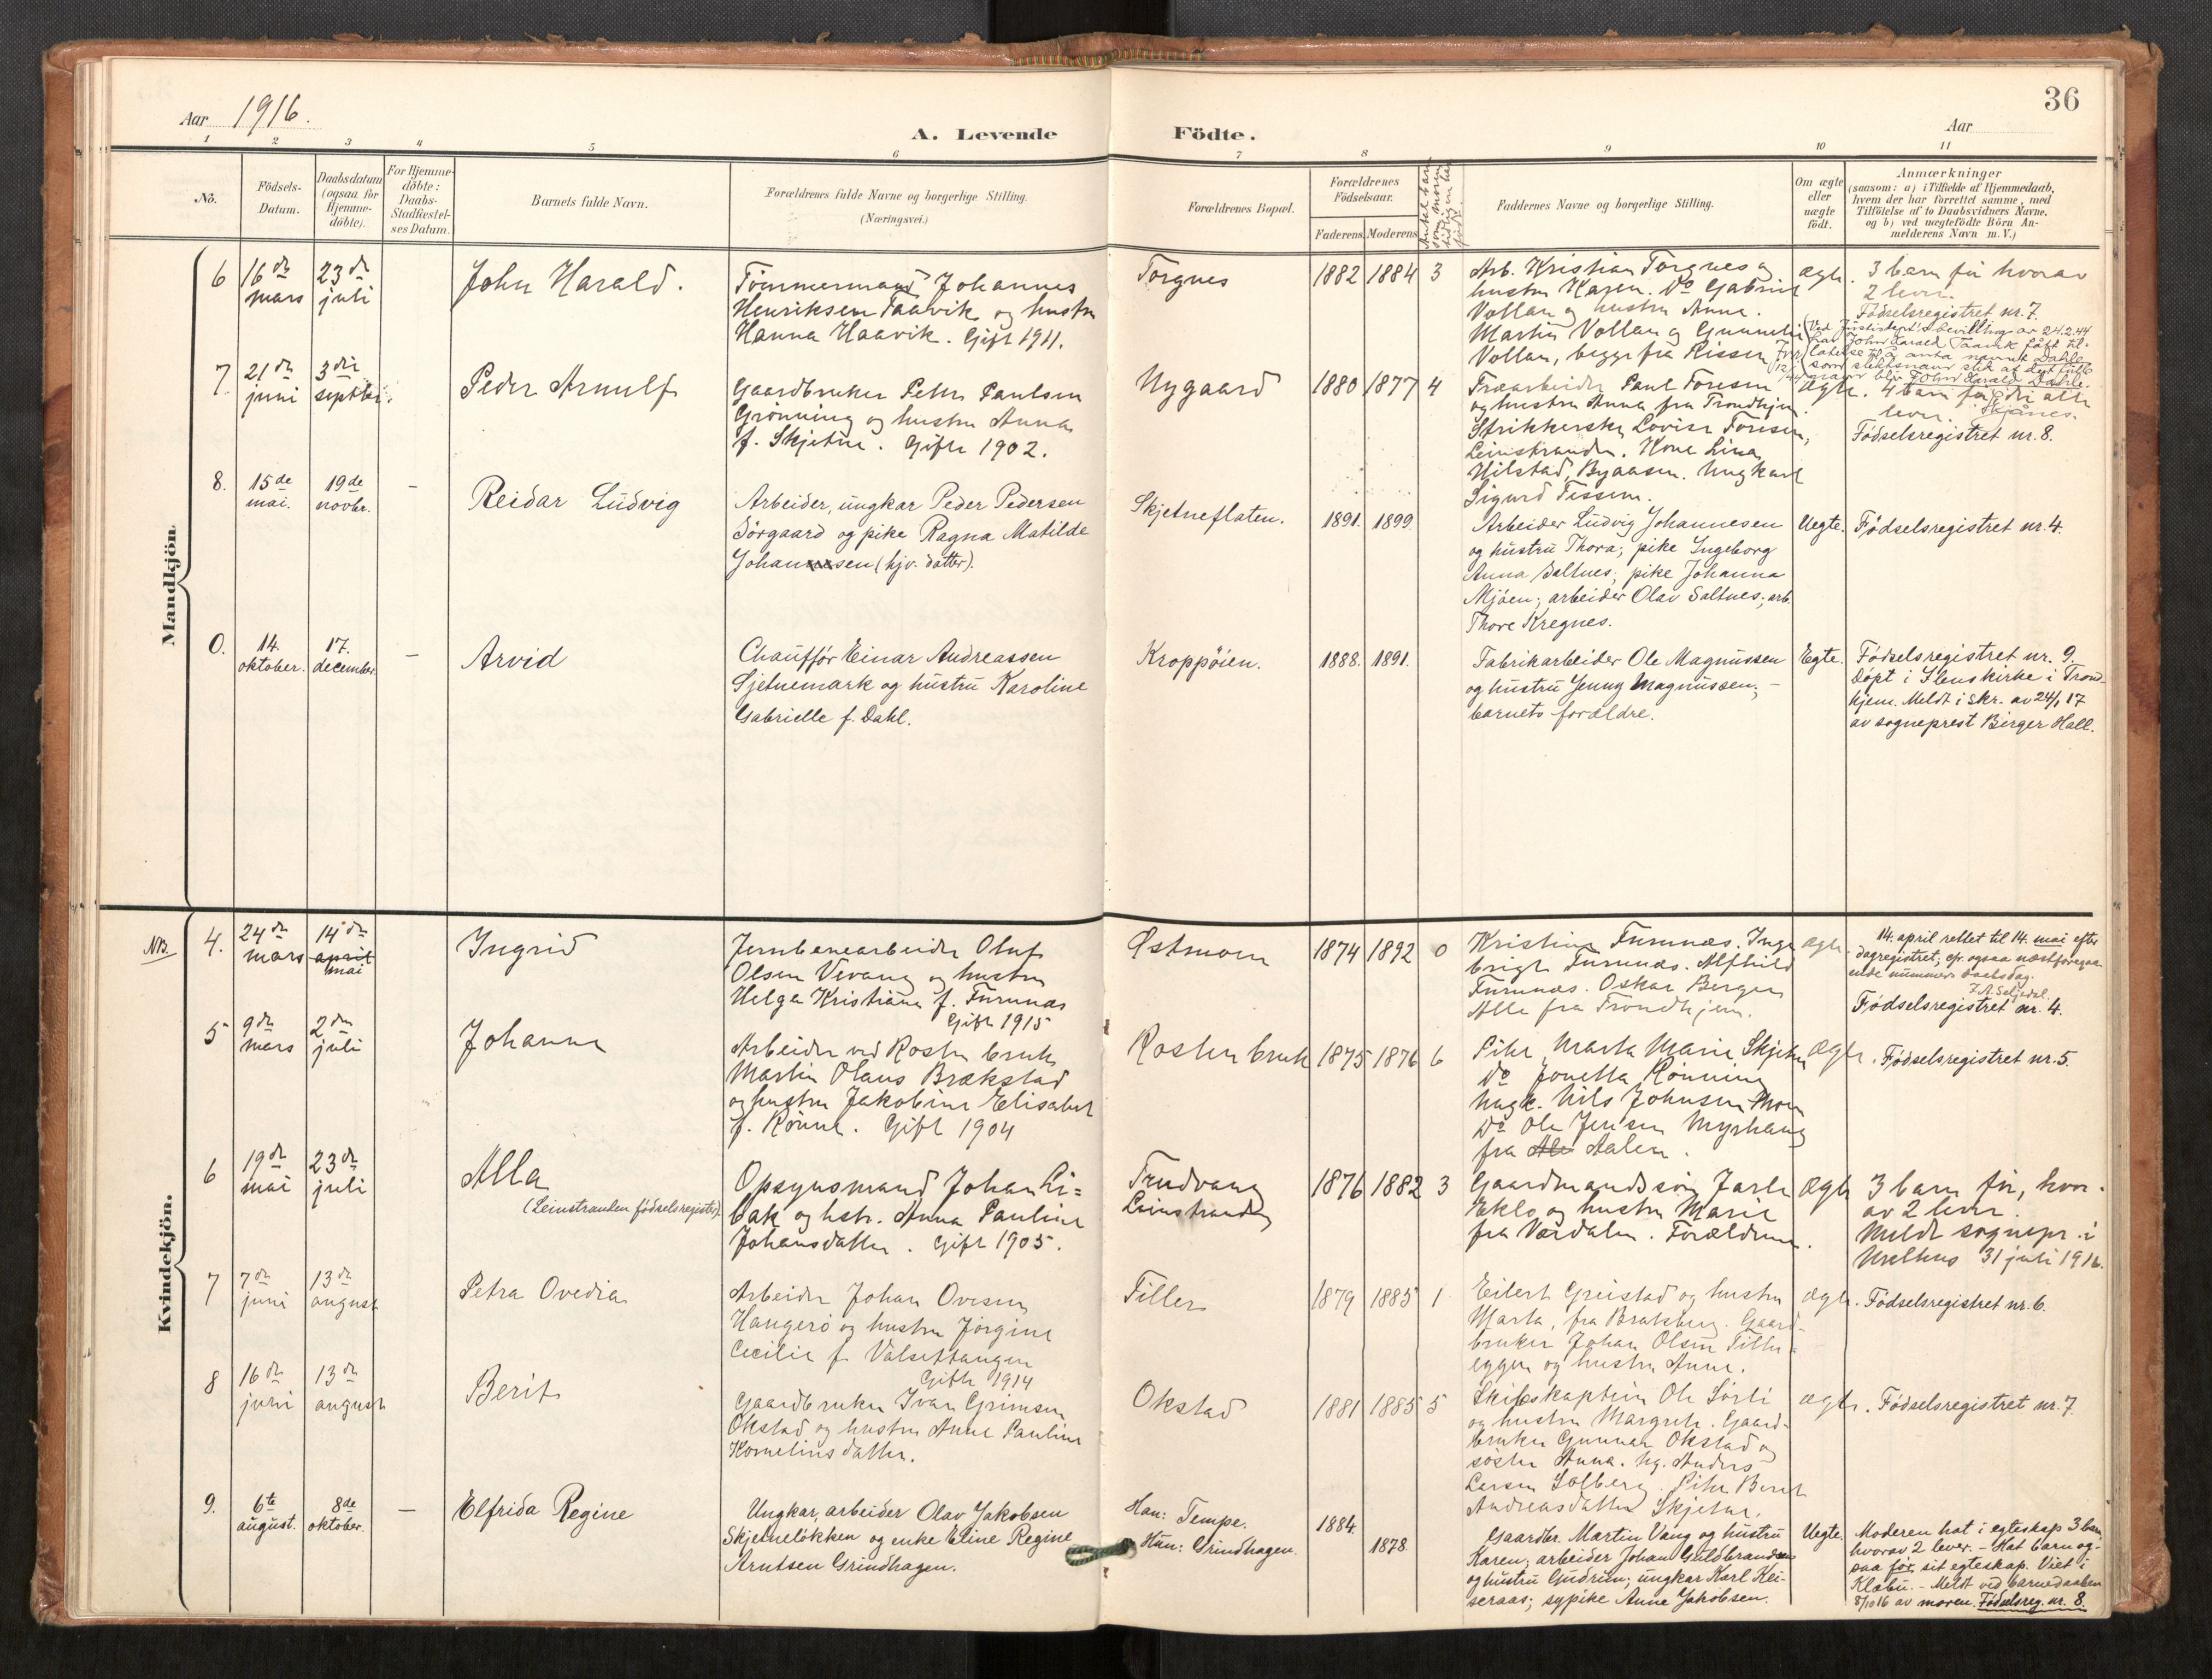 36
Aar 1916.
A. Levende Födte.
Aar
1 2 3 4 5 6 7 8 9 10 11
No.
Födsels-
Datum.
Daabsdatum
(ogsaa for
Hjemme-
döbte).
For Hjemme-
döbte:
Daabs-
Stadfæstel-
ses Datum.
Barnets fulde Navn.
Forældrenes fulde Navne og borgerlige Stilling.
(Næringsvei.)
Forældrenes Bopæl.
Forældrenes
Födselsaar.
Faderens. Moderens.
Faddernes Navne og borgerlige Stilling.
Om ægte
eller
uægte
födt.
Anmærkninger
(saasom: a) i Tilfælde af Hjemmedaab,
hvem der har forrettet samme, med
Tilföielse af to Daabsvidners Navne.
og b) ved uægtefödte Börn An-
melderens Navn m. V.)
Mandkjön.
6
16de
mars
23de
juli
John Harald.
Tømmermand Johannes
Henriksen Taavik og hustru
Hanna Haavik. Gift 1911.
Torgnes
1882 1884 3
Arb. Kristian Torgnes og
hustru Karen. Do Gabriel
Vollan og hustru Anne.
Martin Vollan og
Vollan, begge fra Rissen
ægte.
3 barn før hvorav
2 lever.
Fødselsregistret nr. 7.
Ved Justisdept's bevilling av 24.2.44
har John Harald Taavik fått til-
latelse til å anta navnet Dahle
som slektsnavn slik at det fulle
navn blir John Harald Dahle.
7.
21de
juni
3die
septbr.
Peder Arnulf
Gaardbruker Peter Paulsen
Grønning og hustru Anna
f. Skjetne. Gift 1902.
Nygaard
1880 1877 4
Træarbeider Paul Foresen
og hustru Anna fra Trondhjem.
Strikkerske Lovise Foresen,
Leinstranden. Kone Lina
Nilstad, Byaasen. Ungkarl
Sigurd Tessem.
ægte.
4 barn før, de alle
lever.
Fødselsregistret nr. 8.
8.
15de
mai.
19de
novbr.
-
Reidar Ludvig
Arbeider, ungkar Peder Pedersen
Sörgaard og pike Ragna Matilde
Johansen (hjv. datter).
Skjetneflaten.
1891. 1899.
Arbeider Ludvig Johannesen
og hustru Thora; pike Ingeborg
Anna Saltnes; pike Johanna
Mjöen; arbeider Olav Saltnes; arb.
Thore Kregnes.
Uegte.
Födselsregistret nr. 4.
0.
14.
oktober.
17.
december.
-
Arvid
Chauffør Einar Andreassen
Sjetnemark og hustru Karoline
Gabrielle f. Dahl.
Kroppöien.
1888. 1891.
Fabrikarbeider Ole Magnussen
og hustru Jenny Magnussen; -
barnets forældre.
Egte.
Födselsregistret nr. 9.
Döpt i Ilens kirke i Trond-
hjem. Meldt i skr. av 24/1 17
av sogneprest Birger Hall.
Kvindekjön.
NB.
4.
24de
mars
14de
april
mai
Ingrid
Jernbanearbeider Oluf
Olsen Vevang og hustru
Helga Kristiane f. Furunæs
Gift 1915
Østmoen
1874 1892 0
Kristine Furunæs. Inge
brigt Furunæs. Alfhild
Furunæs. Oskar Bergen
Alle fra Trondhjem.
ægte.
14. april rettet til 14. mai efter
dagregistret; cfr. ogsaa næstforegaa-
ende nummers daabsdag.
Födselsregistret nr. 4.
5
9de
mars
2den
juli
Johanne
Arbeider ved Rosten bruk
Martin Olaus Brækstad
og hustru Jakobine Elisabet
f. Rönne. Gift 1904
Rosten bruk
1875 1876 6
Pike Marta Marie Skjetne
Do Jonetta Rönning
Ungk. Nils Johnsen Moen
Do Ole Jensen Myrhaug
fra Aalen.
ægte.
Födselsregistret nr. 5.
6
19de
mai
23de
juli
Alla
(Leinstrandens födselsregister).
Opsynsmand Johan Li-
bak og hstr. Anna Pauline
Johansdatter. Gift 1905.
Trudvang
Leinstranden
1876 1882 3
Gaardmandssøn Jarle
Eklo og hustru Marie
fra Værdalen. Forældrene.
ægte
3 barn før, hvor-
av 2 lever.
Meldt sognepr. i
Melhus 31 juli 1916.
7
7de
juni
13de
august
Petra Ovedia
Arbeider Johan Ovesen
Haugerö og hustru Jörgine
Cecilie f. Valsettangen
Gift 1914
Tiller
1879 1885 1
Eilert Greistad og hustru
Marta, fra Bratsberg. Gaard-
bruker Johan Olsen Tiller-
eggen og hustru Anne.
ægte.
Födselsregistret nr. 6.
8
16de
juni
13de
august
Berit
Gaardbruker Ivar Grimsen
Okstad og hustru Anne Pauline
Kornelinsdatter.
Okstad
1881 1885 5
Skibskaptein Ole Sørli
og hustru Margrete. Gaard-
bruker Gunnar Okstad og
søster Anna. Ug. Anders
Larsen Solberg. Pike Berit
Andreasdatter Skjetne.
ægte.
Födselsregistret nr. 7.
9.
6te
august.
8de
oktober.
-
Elfrida Regine
Ungkar, arbeider Olav Jakobsen
Skjetnelökken og enke Eline Regine
Arntsen Grindhagen.
Han: Tempe.
Hun: Grindhagen.
1884. 1878.
Gaardbr. Martin Vang og hustru
Karen; arbeider Johan Guldbrandsen
og hustru Gudrun; ungkar Karl Klei-
seraas; sypike Anne Jakobsen.
Uegte.
Moderen hat i egteskap 3 barn,
hvorav 2 lever. - Hat barn og-
saa før sit egteskap. Viet i
Klæbu. - Meldt ved barnedaaben
8/10 16 av moren. Födselsreg. nr. 8.